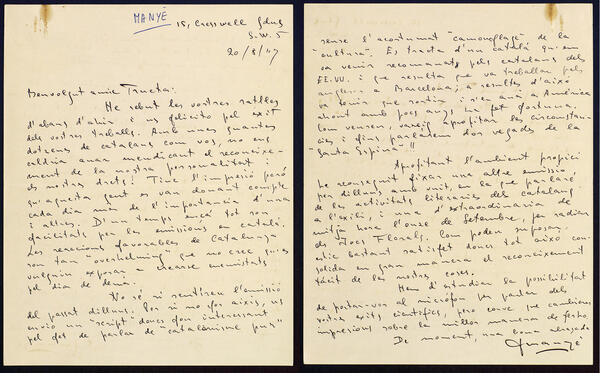 MANYÉ
15, Cresswell Gdns
S.W. 5
20/8/47
Benvolgut amic Trueta:
He rebut les vostres ratlles
d'abans d'ahir i us felicito pel èxit
dels vostres treballs. Amb unes quantes
dotzenes de catalans com vos, no ens
caldria anar mendicant el reconeixe-
ment de la nostra personalitat
els nostres drets! Tinc l'impresió però
qu'aquesta gent es van donant compte
cada dia més de l'importancia d'una
i altres. D'un temps ençà tot son
facilitats per les emissions en català.
Les reaccions favorables de Catalunya
son tan "overwhelming" que no crec qu'es
vulguin exposar a crearse enemistats
pel dia de demà.
No sé si sentireu l'emissió
del passat dilluns. Per si no fos aixis, us
envio un "script" doncs fou interessant
pel fet de parlar de "catalanisme pur"
sense l'acostumat "camouflage" de la
"cultura". Es tracta d'un català qu'ens
va venir recomanat pels catalans dels
EE.UU. i que resulta que va treballar pels
anglesos a Barcelona; a resultes d'això
va tenir que sortir i s'en anà a América
ahont amb pocs anys ha fet fortuna.
Com veureu, vareig aprofitar les circumstan-
cies i fins parlarem dos vegades de la
"Santa Espina"!!
Aprofitant l'ambient propici
he aconseguit fixar una altre emissió
per dilluns amb vuit, en la que parlaré
de les activitats literaries dels catalans
a l'exili, i una d'extraordinaria de
mitja hora l'onze de Setembre, per radiar
els Jocs Florals. Com podeu suposar,
estic bastant satisfet doncs tot això con-
solida en gran manera el reconeixement
tàcit de les nostres coses.
Hem d'estudiar la possibilitat
de portar-vos al micròfon per parlar dels
vostres exits cientifics, però convé que cambiem
impresions sobre la millor manera de ferho.
De moment, una bona abraçada
Jmanyé